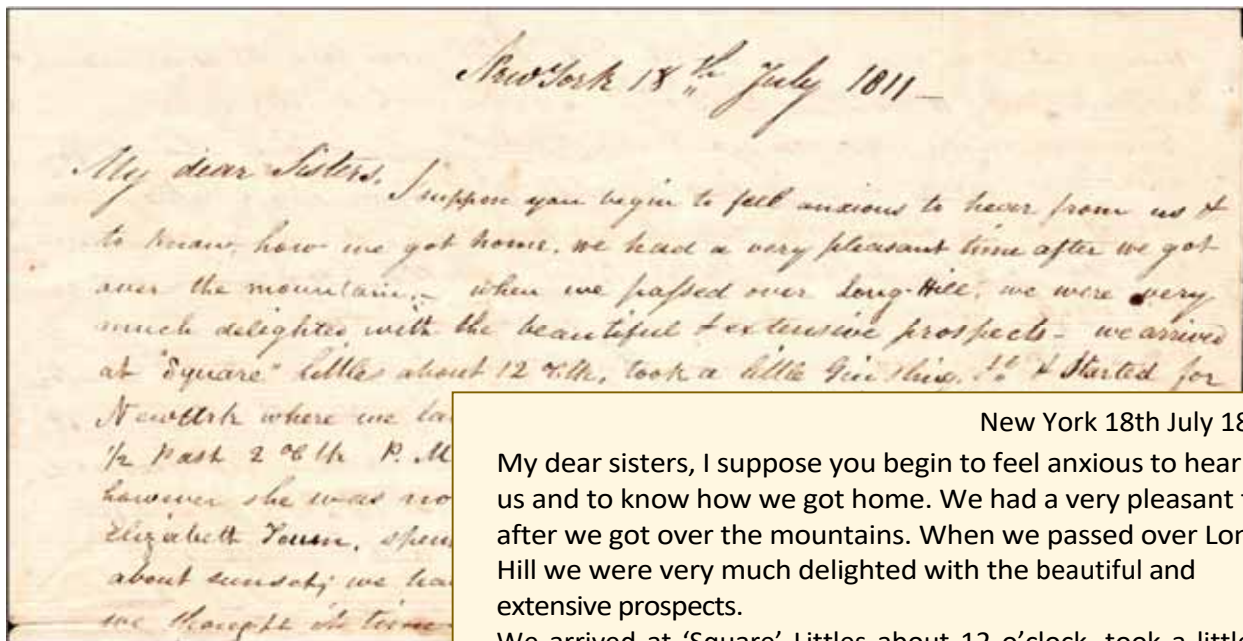 New York 18th July 1811 –
My dear Sisters, I suppose you begin to feel anxious to hear from us &
to know how we got home. we had a very pleasant time after we got
over the mountain. – when we passed over Long-Hill, we were very
much delighted with the beautiful & extensive prospects – we arrived
at "Square" Littles about 12 oClk, took a little & Started for
Newark where we
1/2 Past 2 oClk P. M
however she was no
Elizabeth Town, spen
about sunset; we ha
we thought it time
New York 18th July 18
My dear sisters, I suppose you begin to feel anxious to hear
us and to know how we got home. We had a very pleasant
after we got over the mountains. When we passed over Lon
Hill we were very much delighted with the beautiful and
extensive prospects.
We arrived at ‘Square’ Littles about 12 o’clock, took a little